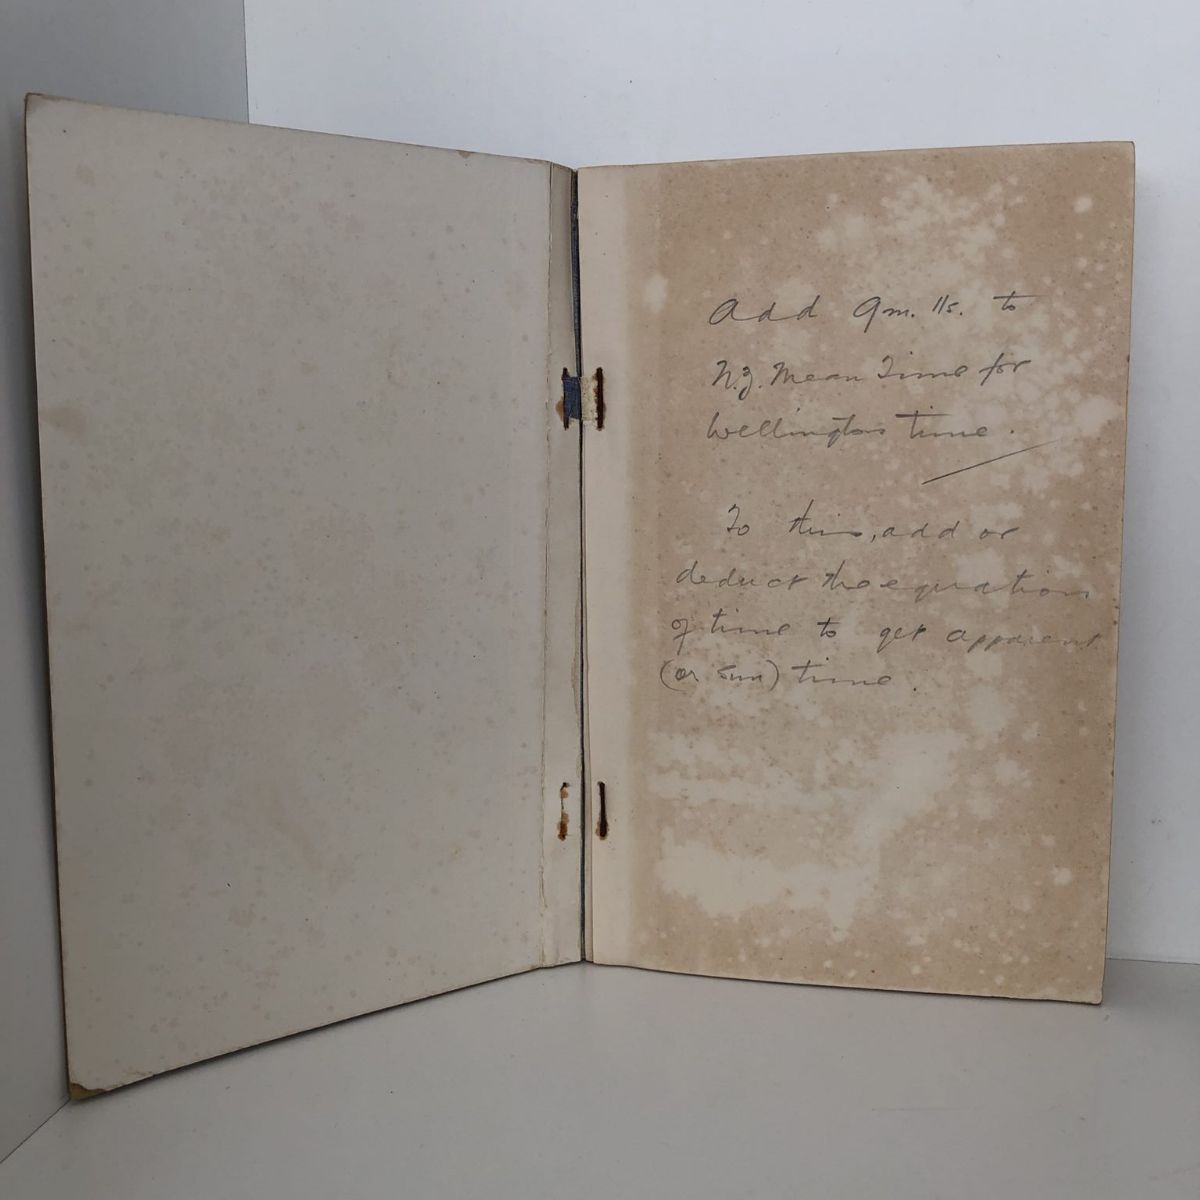 Add 9m. 11s. to
N.Z. Mean Time for
Wellington time.
To this, add or
deduct the equation
of time to get apparent
(or sun) time.